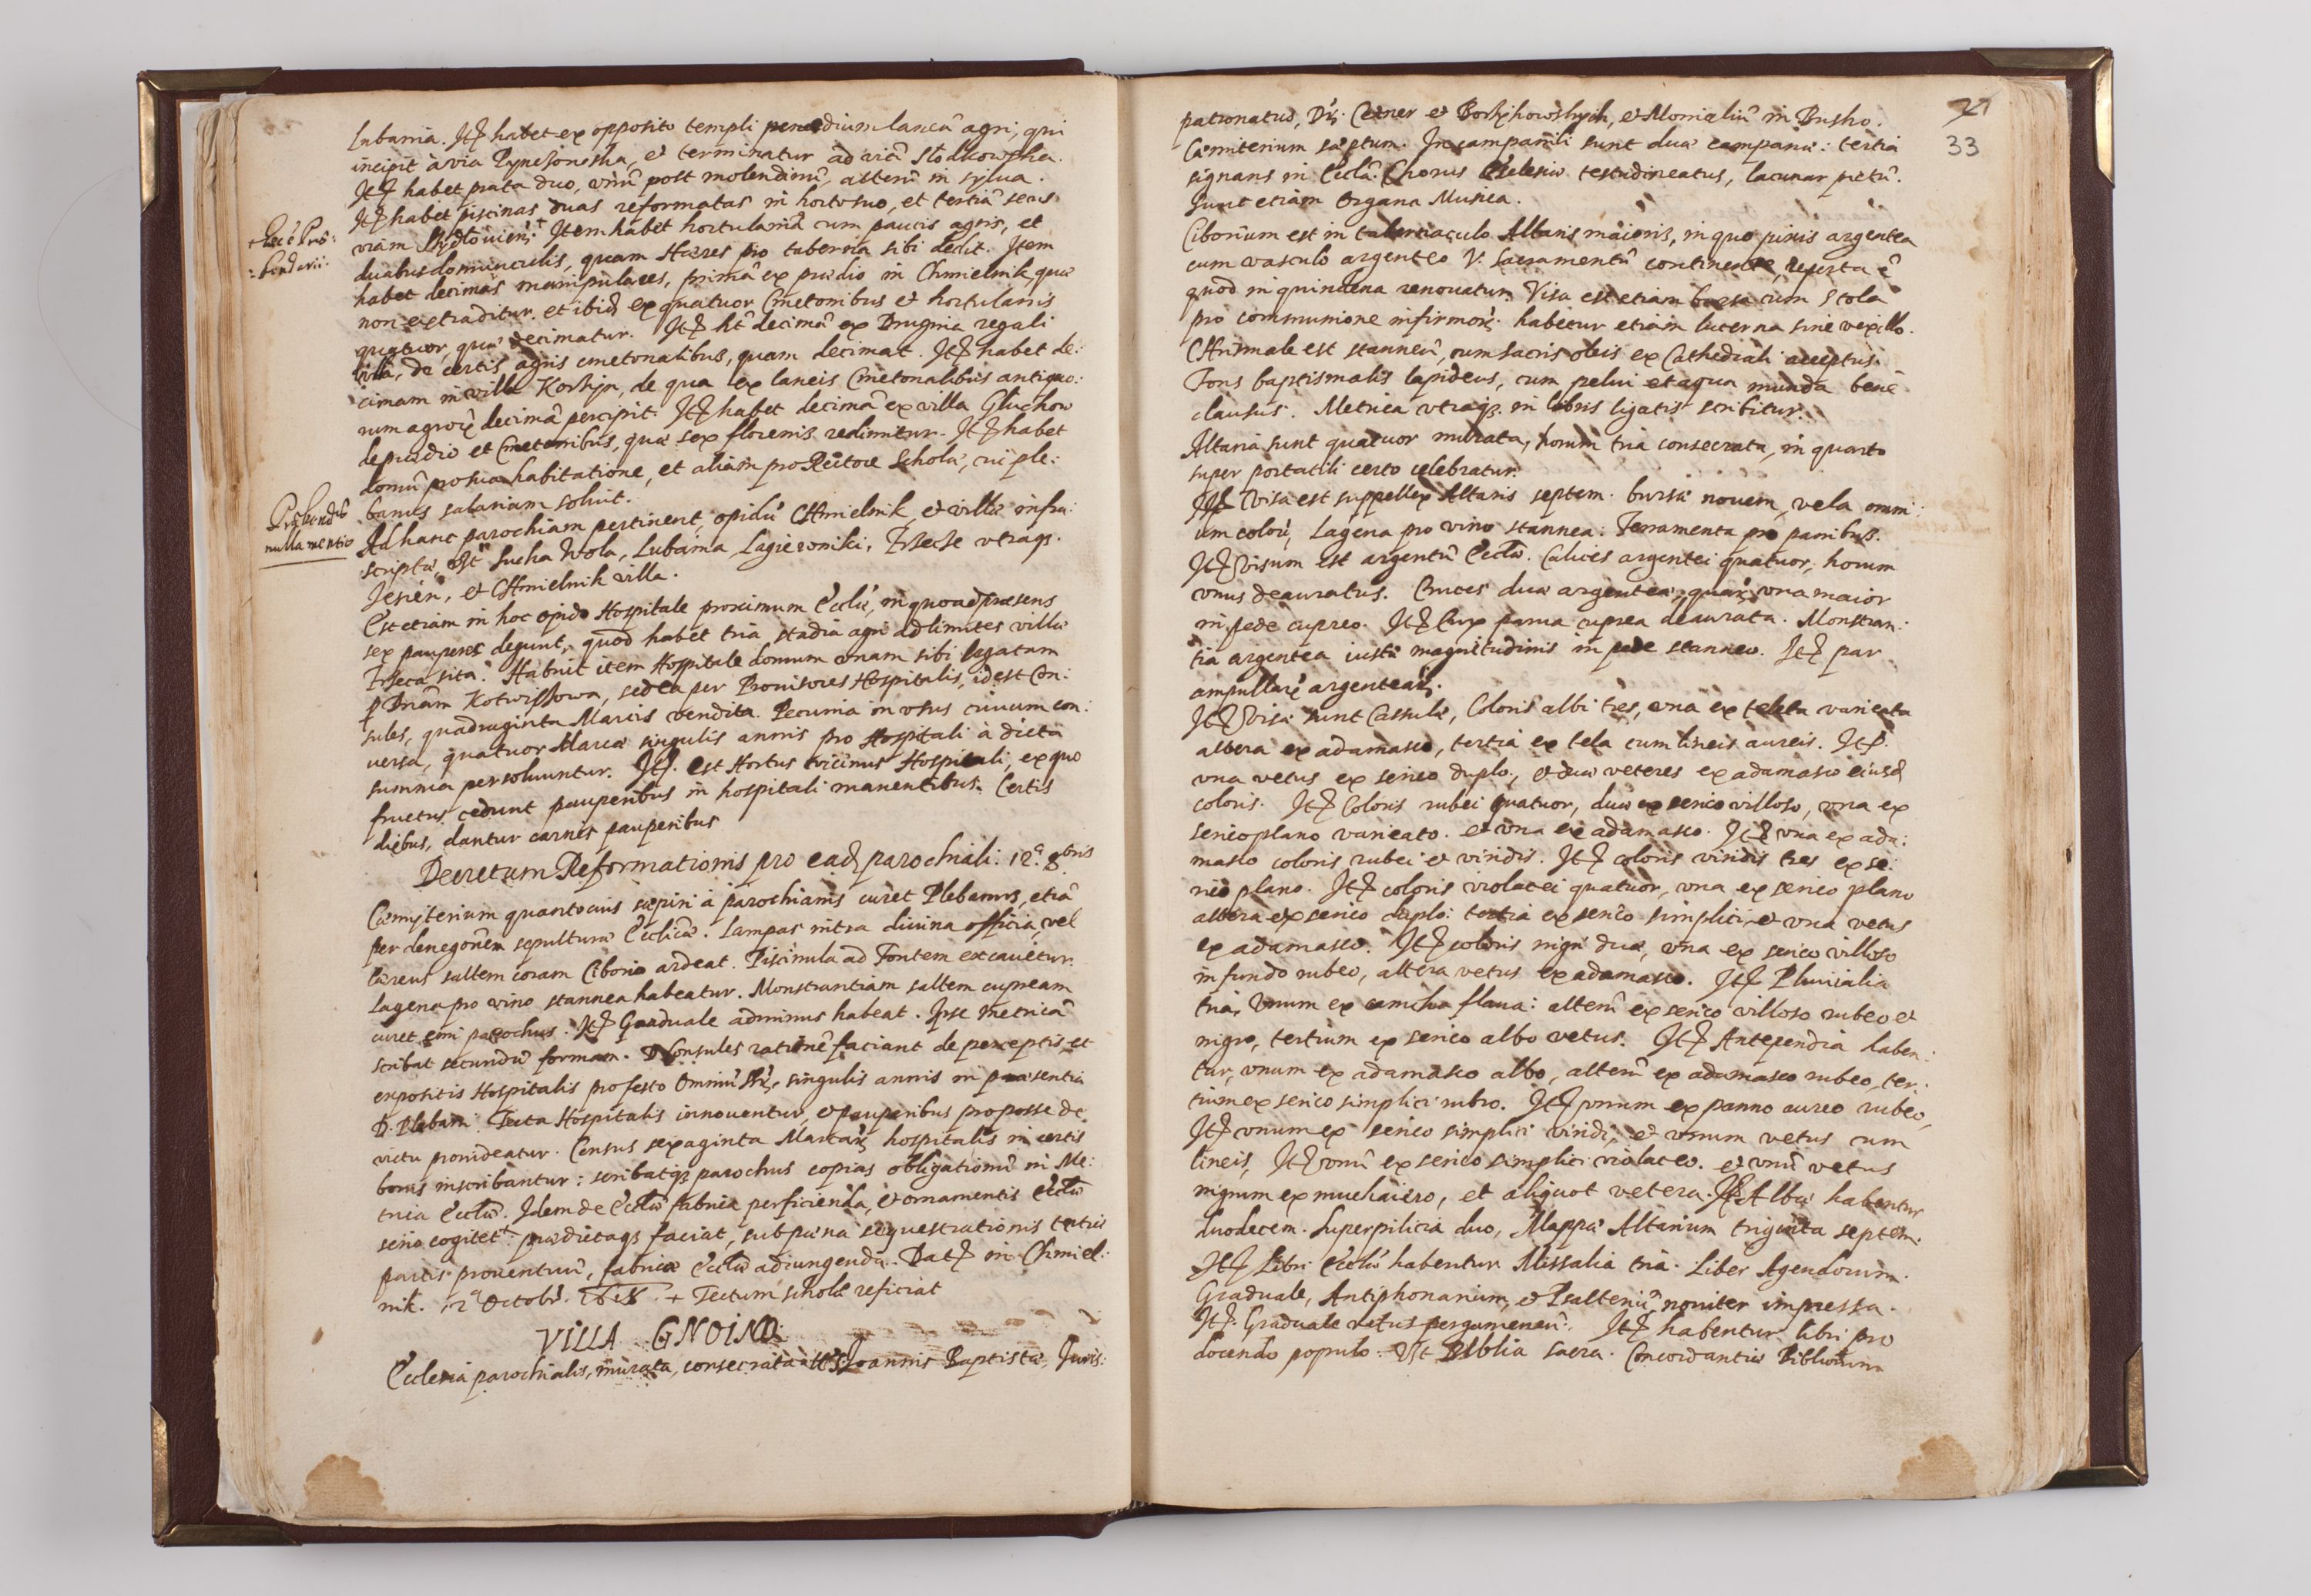 Lubania. Itē habet ex opposito templi penes dium laneū agri, qui
incipit à via Pynczoneska, et terminatur ad viā Slodkowska.
Itē habet prata duo, vnū post molendinū, alterū in sylua.
Itē habet piscinas duas reformatas in horto suo, et tertiā secus
viam Shydlouien: + Item habet hortulaniā cum paucis agris, et
+ hęc ē Prę:
:bendarii:
duabus domunculis, quam Hæres pro taberna sibi dedit. Item
habet decimas manipulares, primā ex prædio in Chmielnik, quæ
non extraditur. et ibid ex quatuor Cmetonibus et hortulanis
quatuor, quæ decimatur. Itē ht decimā ex Drugnia regali
villa, de certis agris cmetonalibus, quam decimat. Itē habet de:
cimam in villa Korzyn, de qua ex laneis Cmetonalibus antiquo:
rum agrorū decimā percipit. Itē habet decimā ex villa Gluchow
de prædio et Cmetonibus, quæ sex florenis redimitur. Itē habet
domū pro sua habitatione, et aliam pro Rectore Scholæ, cui ple:
banus salarium soluit.
Præbendæ
nulla mentio
Ad hanc parochiam pertinent, opidū Chmielnik, et villæ infra:
scriptæ, vt Sucha Wola, Lubania, Lagiewniki, Trzecze vtraqz.
Jesień, et Chmielnik villa.
Est etiam in hoc opido Hospitale proximum Eccliæ, in quo ad præsens
sex pauperes degunt, quod habet tria stadia agri ad limites villæ
Trzeca sita. Habuit item Hospitale domum vnam sibi legatam
p Dnam Kotwissowa, sed ea per Prouisores Hospitalis, id est Con:
sules, quadraginta Marcis vendita. Pecunia in vsus ciuium con:
uersa, quatuor Marcæ singulis annis pro Hospitali à dicta
summa persoluuntur. Itē. est Hortus vicinus Hospitali, ex quo
fructus cedunt pauperibus in hospitali manentibus. Certis
diebus, dantur carnes pauperibus
Decretum Reformationis pro ead parochiali. 12ª. 8bris
Cæmyterium quantocius sæpiri à parochianis curet Plebanus, etiā
per denegonem sepulturæ Ecclicæ. Lampas intra diuina officia, vel
cæreus saltem coram Ciborio ardeat. Piscinula ad Fontem excauetur.
Lagena pro vino stannea habeatur. Monstrantiam saltem cupream
curet emi parochus. Itē Graduale adminus habeat. Ipse metricā
scribat secundū formam. Consules rationē faciant de perceptis, et
expositis Hospitalis pro festo Omniū Sctorū, singulis annis in præsentia
D. Plebani. Tecta Hospitalis innouentur, et pauperibus pro posse de
victu prouideatur. Census sexaginta Marcarū hospitalis in certis
bonis inscribantur: scribatqz parochus copias obligationū in Me:
trica Eccliæ. Idem de Eccliæ fabrica perficienda, et ornamentis Eccliæ
serio cogitet + prædictaqz faciat, sub pæna sequestrationis tertiæ
partis prouentuū, fabricæ Eccliæ adiungendæ. Datē in Chmiel:
nik. 12ª Octobr. 1618. + Tectum scholæ reficiat
VILLA GNOINO.
Ecclesia parochialis, murata, consecrata tti S. Joannis Baptistæ, Juris:
21
33
patronatus, DD. Cetner et Borzykowskych, et Monialiū in Busko.
Cæmiterium sæptum. In campanili sunt duæ campanæ: tertia
signans in Ecclā. Chorus Ecclesiæ testudineatus, lacunar pictū.
Sunt etiam Organa Musica.
Ciborium est in tabernaculo Altaris maioris, in quo pixis argentea
cum vasculo argenteo V. Sacramentū continente, reperta ē
quod in quindena renouatur. Visa est etiam bursa cum Stola
pro communione infirmorū. habetur etiam lucerna sine vexillo.
Chrismale est stanneū, cum sacris oleis ex Cathedrali acceptis.
Fons baptismalis lapideus, cum pelui et aqua munda bene
clausus. Metrica vtraqz in libris ligatis scribitur.
Altaria sunt quatuor murata, horum tria consecrata, in quarto
super portatili certo celebratur.
Itē Visa est suppellex Altaris septem. bursæ nouem, vela omni:
um colorū, Lagena pro vino stannea: Ferramenta pro panibus.
Itē visum est argentū Eccliæ. Calices argentei quatuor, horum
vnus deauratus. Cruces duæ argenteæ, quarū vna maior
in pede cupreo. Itē Crux parua cuprea deaurata. Monstran:
tia argentea iustæ magnitudinis in pede stanneo. Itē par
ampullarū argentearū.
Itē Visæ sunt Casulæ, Coloris albi tres, vna ex teleta varicata
altera ex adamasco, tertia ex tela cum lineis aureis. Itē.
vna vetus ex serico duplo, et duæ veteres ex adamasco eiusd
coloris. Itē Coloris rubei quatuor, duæ ex serico villoso, vna ex
serico plano varicato. et vna ex adamasco. Itē vna ex ada:
masco coloris rubei et viridis. Itē coloris viridis tres ex se:
rico plano. Itē coloris violacei quatuor, vna ex serico plano
altera ex serico duplo: tertia ex serico simplici, et vna vetus
ex adamasco. Itē coloris nigri duæ, vna ex serico villoso
in fundo rubeo, altera vetus ex adamasco. Itē Pluuialia
tria, Vnum ex camcha flaua: alterū ex serico villoso rubeo et
nigro, tertium ex serico albo vetus. Itē Antependia haben:
tur, vnum ex adamasco albo, alterū ex adamasco rubeo, ter:
tium ex serico simplici rubro. Itē vnum ex panno aureo rubeo,
Itē vnum ex serico simplici viridi, et vnum vetus cum
lineis, Itē vnū ex serico simplici violaceo. et vnū vetus
nigrum ex muchaiero, et aliquot vetera. Itē Albæ habentur
duodecem. Superpilicia duo, Mappæ Altarium triginta septem.
Itē Libri Eccliæ habentur Missalia tria. Liber Agendorum.
Graduale, Antiphonarium, et Psalteriū nouiter impressa.
Itē. Graduale vetus pergameneū. Itē habentur libri pro
docendo populo. Vt Biblia sacra. Concordantiæ Bibliorum